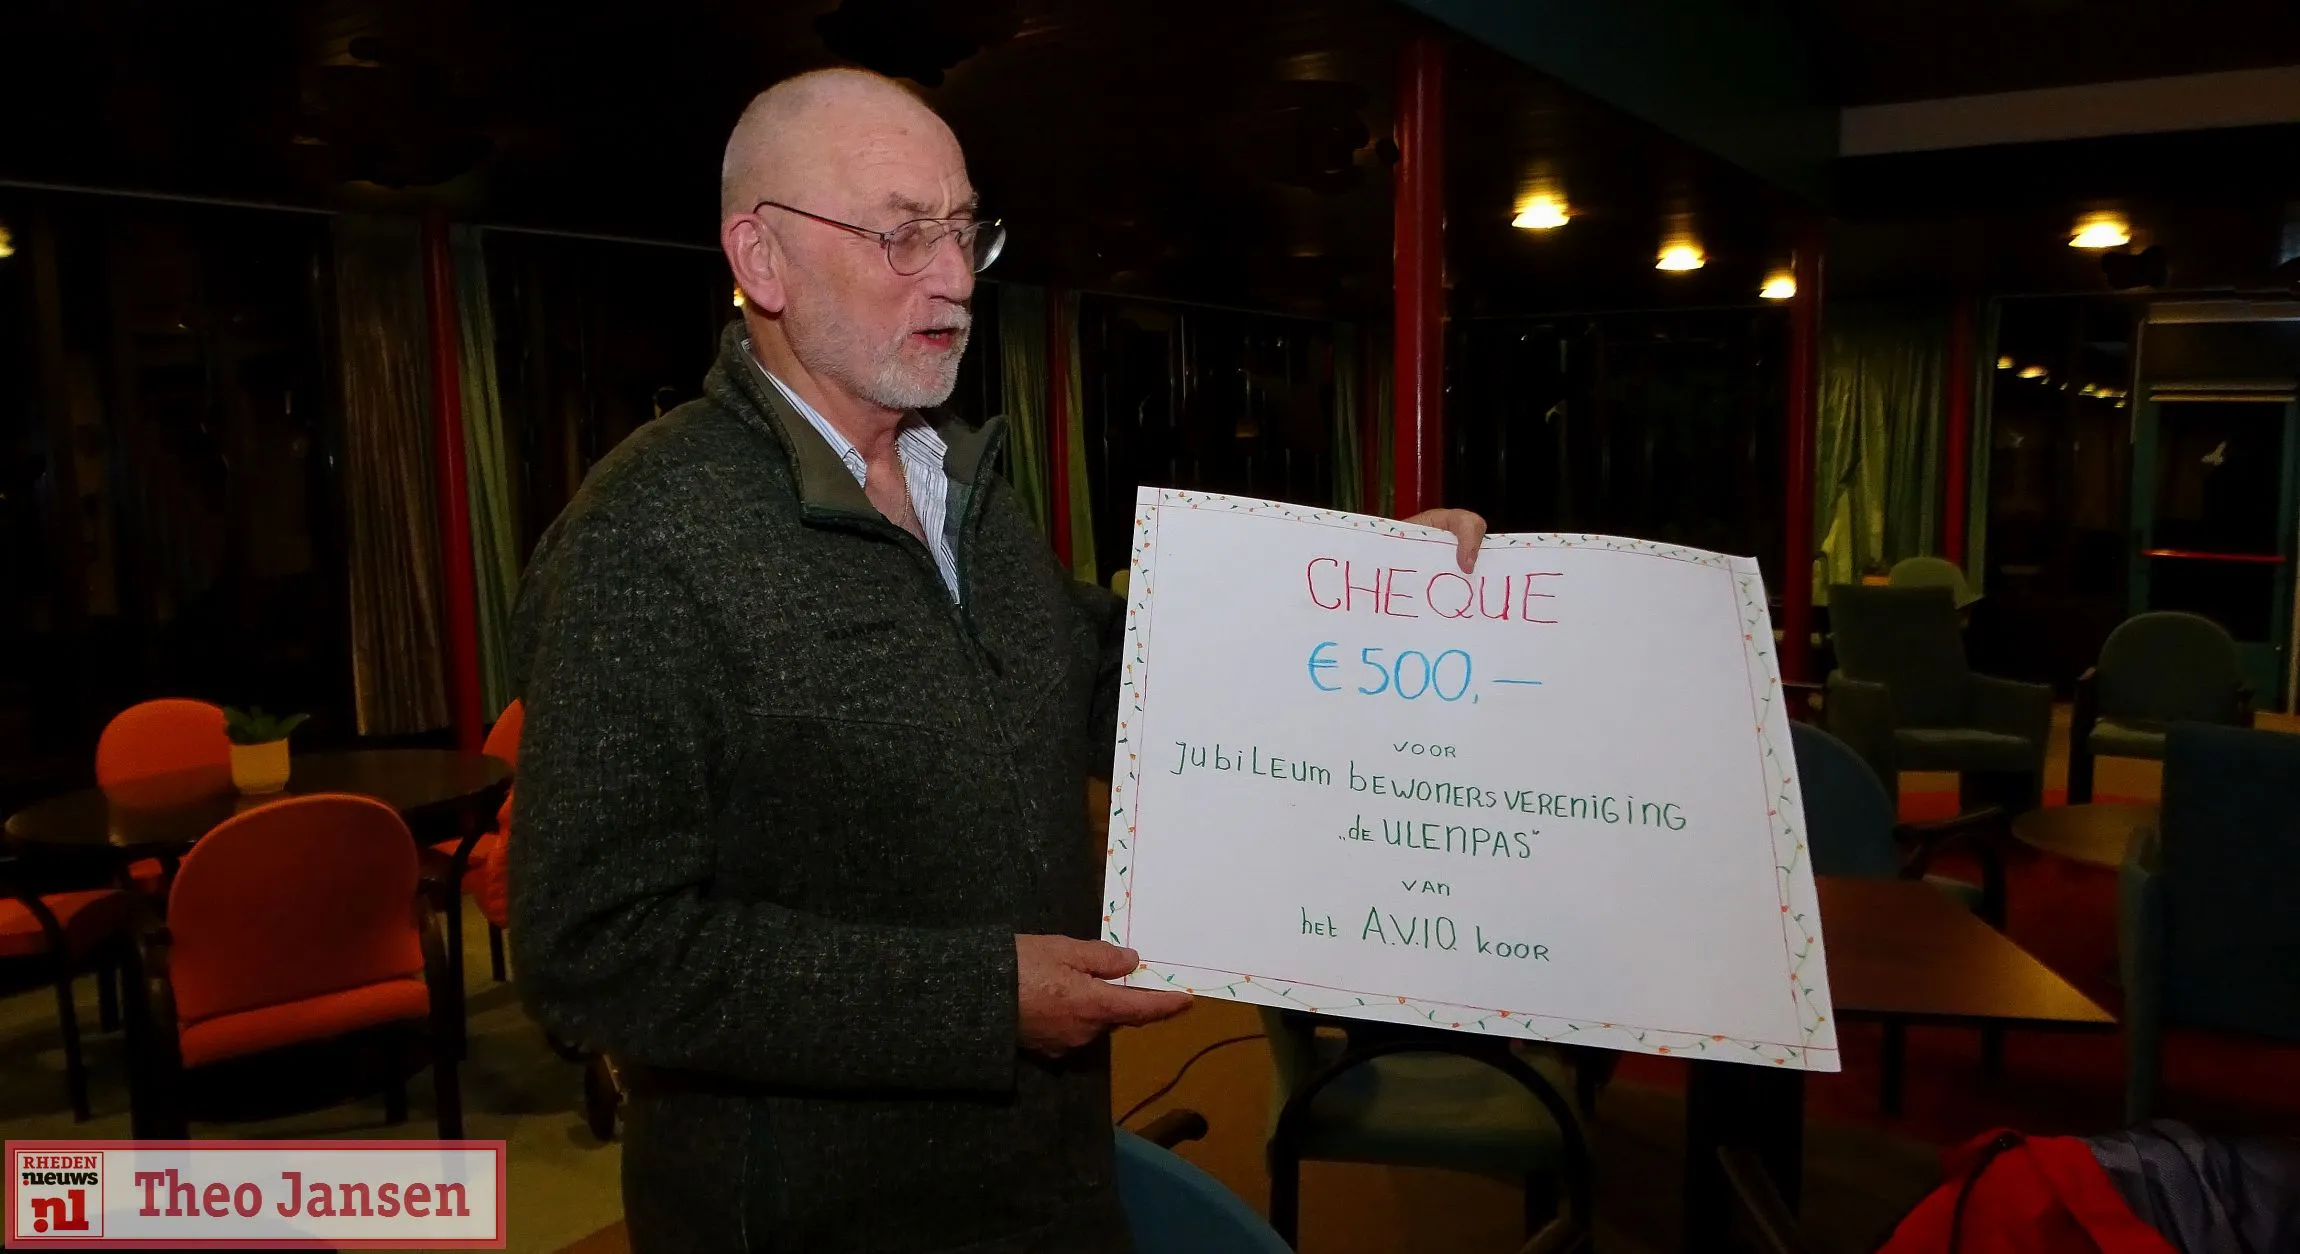 CHEQUE
€ 500,—
VOOR
JUBILEUM BEWONERSVERENIGING
„de ULENPAS"
VAN
het A.V.I.O. KOOR
MAMMUT
RHEDEN
nieuws
.nl
Theo Jansen